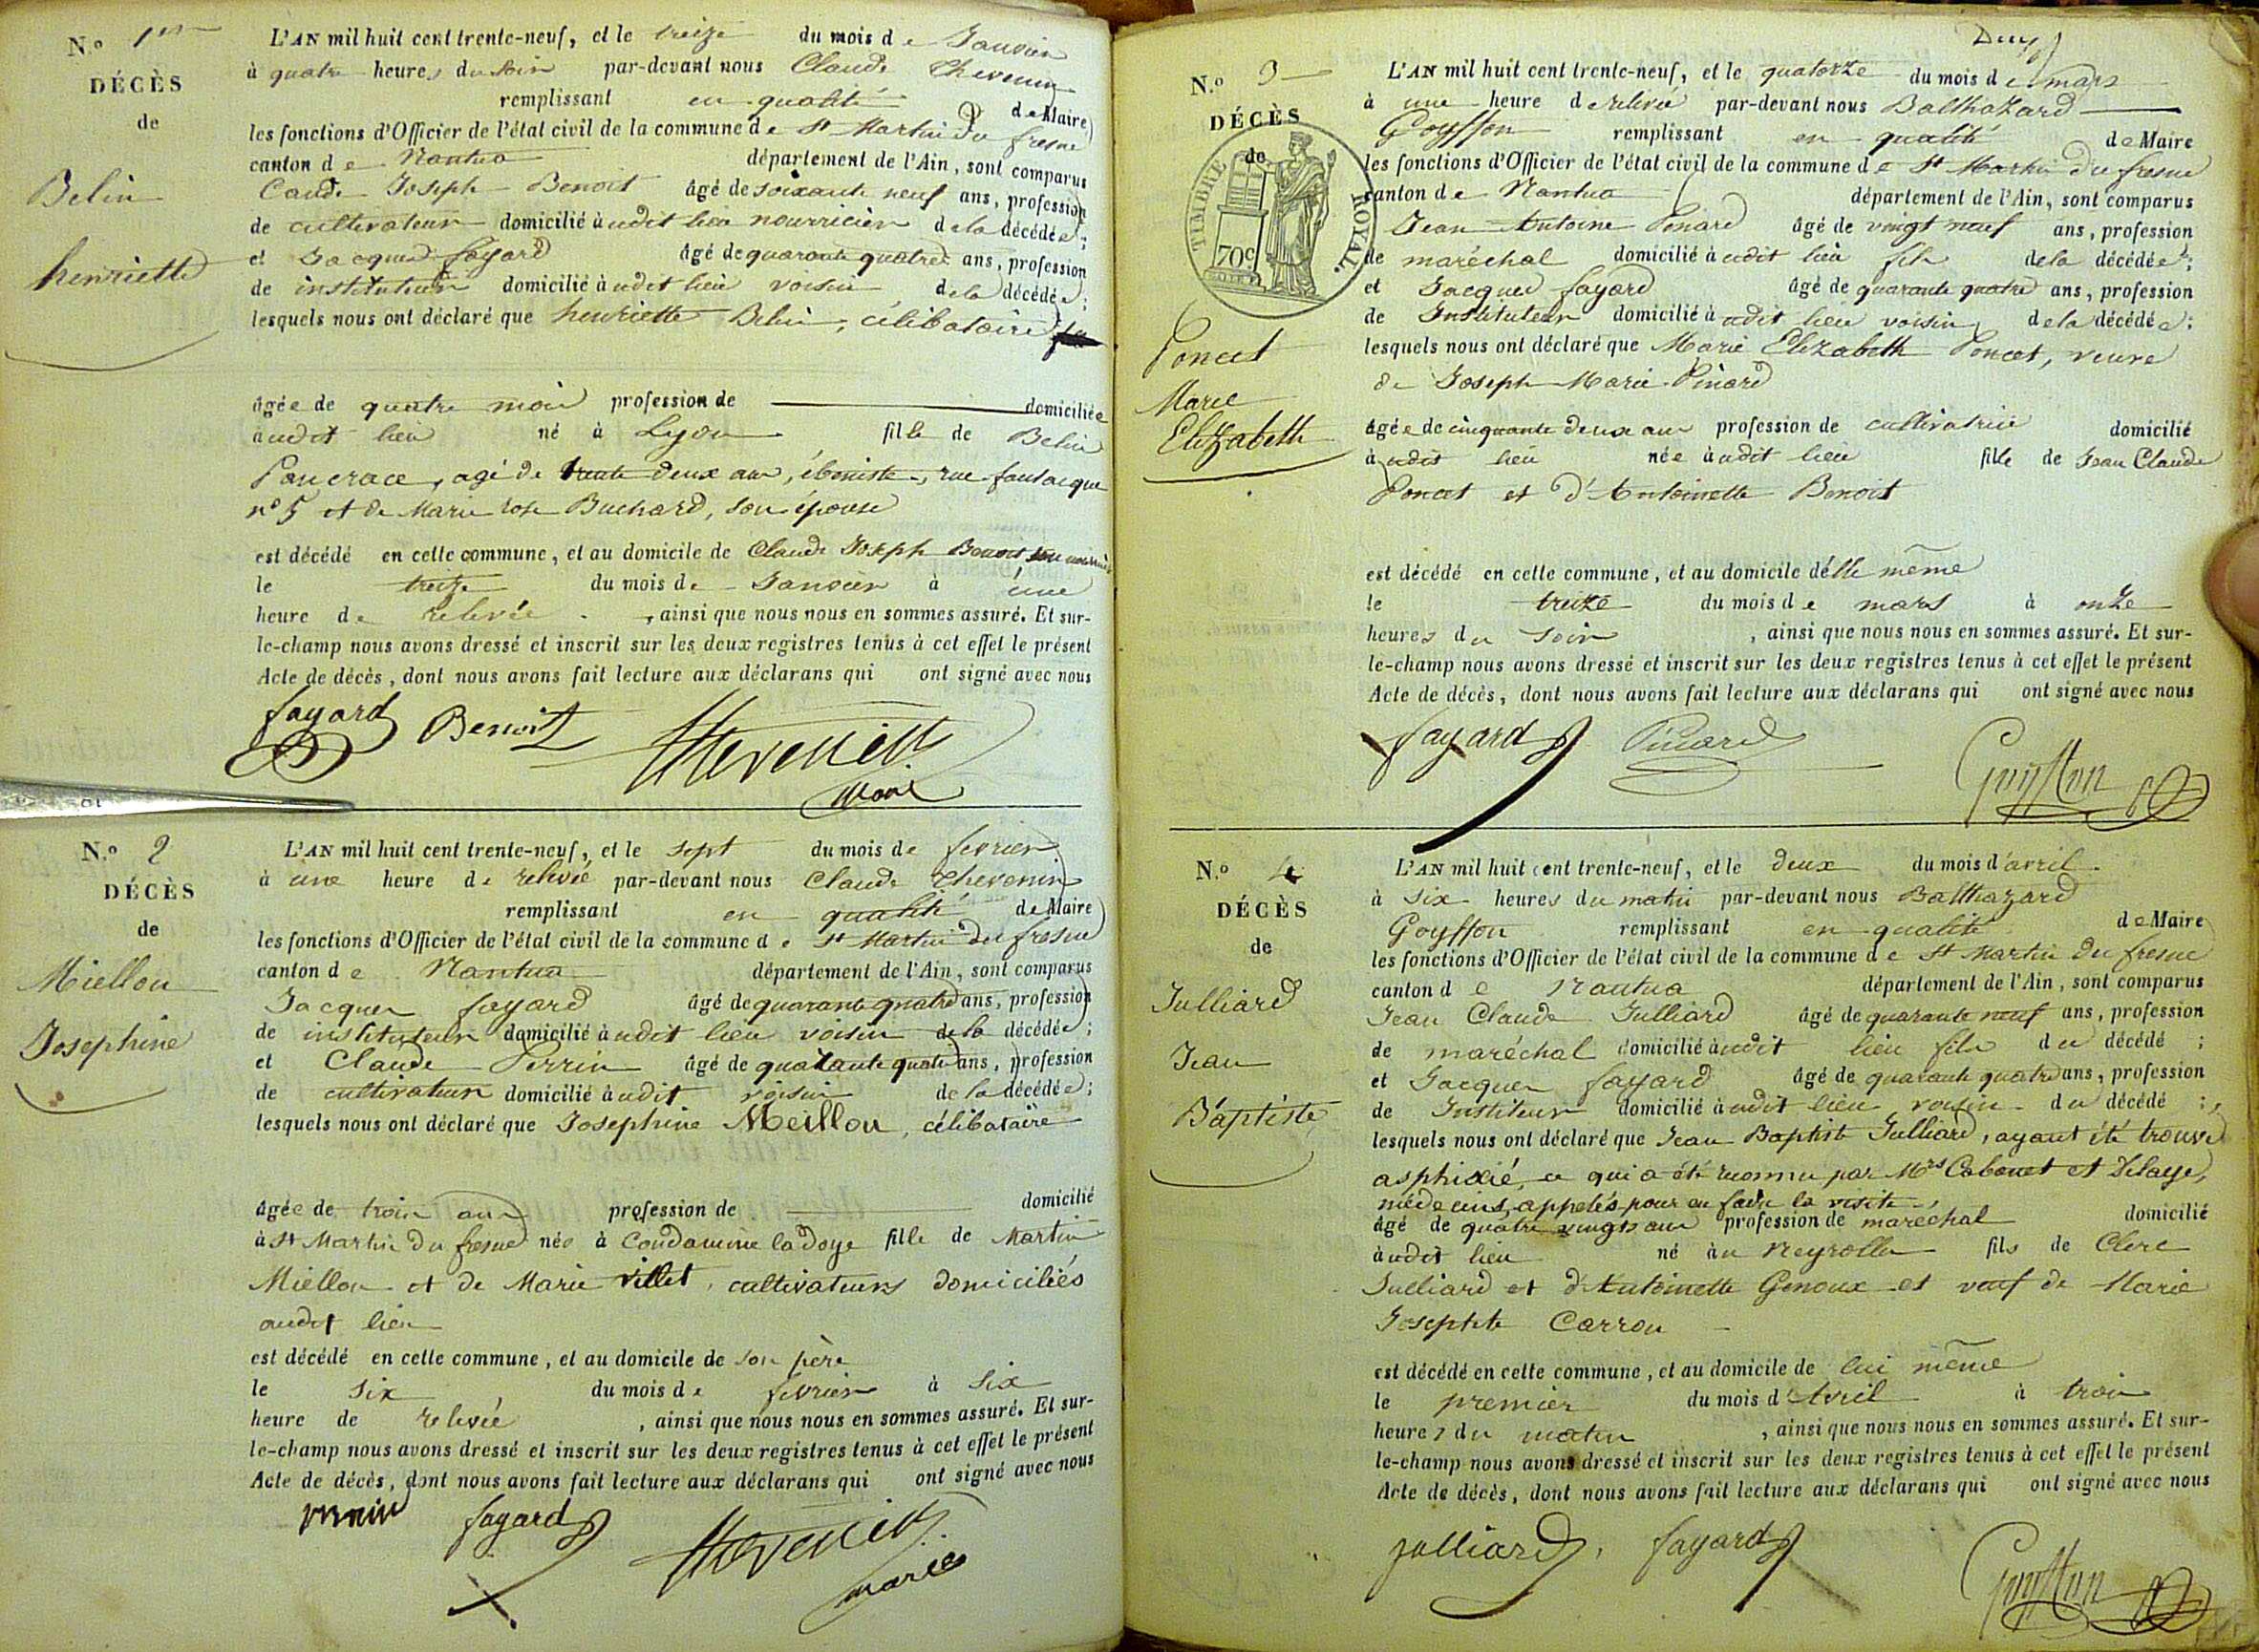 N.º 1er
DÉCÈS
de
Belin
henriette
L'AN mil huit cent trente-neuf, et le treize du mois de Janvier
à quatre heures du soir par-devant nous Claude Chevenin
remplissant en qualité de Maire
les fonctions d'Officier de l'état civil de la commune de St Martin Du fresne
canton de Nantua département de l'Ain, sont comparus
Caude Joseph Benoit âgé de soixante neuf ans, profession
de cultivateur domicilié àudit lieu nourricier de la décédée;
et Jacques fayard âgé de quarante quatre ans, profession
de instituteur domicilié àudit lieu voisin de la décédée;
lesquels nous ont déclaré que henriette Belin, célibataire
âgée de quatre mois profession de domiciliée
audit lieu né à Lyon fille de Belin
Pancrace, agé de trente deux ans, ébeniste, rue
nº 5 et de Marie rose Buchard, son épouse
est décédé en cette commune, et au domicile de Claude Joseph Benoit son nourricier
le treize du mois de Janvier à une
heure de relevée, ainsi que nous nous en sommes assuré. Et sur-
le-champ nous avons dressé et inscrit sur les deux registres tenus à cet effet le présent
Acte de décès, dont nous avons fait lecture aux déclarans qui ont signé avec nous
fayard Benoit Chevenin
Maire
N.º 2
DÉCÈS
de
Miellon
Josephine
L'AN mil huit cent trente-neuf, et le sept du mois de fevrier
à une heure de relevée par-devant nous Claude Chevenin
remplissant en qualité de Maire
les fonctions d'Officier de l'état civil de la commune de St Martin du fresne
canton de Nantua département de l'Ain, sont comparus
Jacques fayard âgé de quarante quatre ans, profession
de instituteur domicilié àudit lieu voisin de la décédée;
et Claude Perrin âgé de quarante quatre ans, profession
de cultivateur domicilié àudit voisin de la décédée;
lesquels nous ont déclaré que Josephine Meillon, célibataire
âgée de trois ans profession de domicilié
à St Martin du fresne née à Condamine la doye fille de Martin
Miellon et de Marie Villet, cultivateurs domiciliés
audit lieu
est décédé en cette commune, et au domicile de son père
le six du mois de fevrier à six
heure de relevée, ainsi que nous nous en sommes assuré. Et sur-
le-champ nous avons dressé et inscrit sur les deux registres tenus à cet effet le présent
Acte de décès, dont nous avons fait lecture aux déclarans qui ont signé avec nous
fayard Chevenin
maire
Deux
N.º 3
DÉCÈS
de
TIMBRE ROYAL.
70c
Poncet
Marie
Elizabeth
L'AN mil huit cent trente-neuf, et le quatorze du mois de mars
à une heure de relevée par-devant nous Balthazard
Goyffon remplissant en qualité de Maire
les fonctions d'Officier de l'état civil de la commune de St Martin du fresne
canton de Nantua département de l'Ain, sont comparus
Jean Antoine Pinard âgé de vingt neuf ans, profession
de maréchal domicilié àudit lieu fils de la décédée;
et Jacques fayard âgé de quarante quatre ans, profession
de Instituteur domicilié àudit lieu voisin de la décédée;
lesquels nous ont déclaré que Marie Elizabeth Poncet, veuve
de Joseph Marie Pinard
âgée de cinquante deux ans profession de cultivatrice domicilié
àudit lieu née àudit lieu fille de Jean Claude
Poncet et d'Antoinette Benoit
est décédé en cette commune, et au domicile d'elle même
le treize du mois de mars à onze
heures du soir, ainsi que nous nous en sommes assuré. Et sur-
le-champ nous avons dressé et inscrit sur les deux registres tenus à cet effet le présent
Acte de décès, dont nous avons fait lecture aux déclarans qui ont signé avec nous
fayard Pinard Goyffon
N.º 4
DÉCÈS
de
Julliard
Jean
Baptiste
L'AN mil huit cent trente-neuf, et le deux du mois d'avril
à six heures du matin par-devant nous Balthazard
Goyffon remplissant en qualité de Maire
les fonctions d'Officier de l'état civil de la commune de St Martin du fresne
canton de Nantua département de l'Ain, sont comparus
Jean Claude Julliard âgé de quarante neuf ans, profession
de maréchal domicilié àudit lieu fils du décédé;
et Jacques fayard âgé de quarante quatre ans, profession
de Instituteur domicilié àudit lieu voisin du décédé;
lesquels nous ont déclaré que Jean Baptiste Julliard, ayant été trouvé
asphixié, ce qui a été reconnu par Mrs Cabanet et Delaye,
médecins, appelés pour en faire la visite,
âgé de quatre vingts ans profession de maréchal domicilié
àudit lieu né àu Neyrolles fils de Clerc
Julliard et d'Antoinette Genoux et veuf de Marie
Josephte Carron
est décédé en cette commune, et au domicile de lui même
le premier du mois d'Avril à trois
heures du matin, ainsi que nous nous en sommes assuré. Et sur-
le-champ nous avons dressé et inscrit sur les deux registres tenus à cet effet le présent
Acte de décès, dont nous avons fait lecture aux déclarans qui ont signé avec nous
julliard, fayard Goyffon